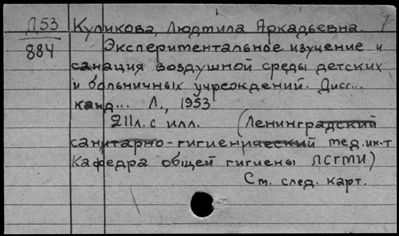 П53 Куликова, Людмила Аркадьевна. 7
884 Экспериментальное изучение и
санация воздушной среды детских
и больничных учреждений. Дисс...
канд... Л., 1953
211л. с илл. (Ленинградский
санитарно-гигиенический мед. ин-т
Кафедра общей гигиены ЛСГМИ)
См. след. карт.